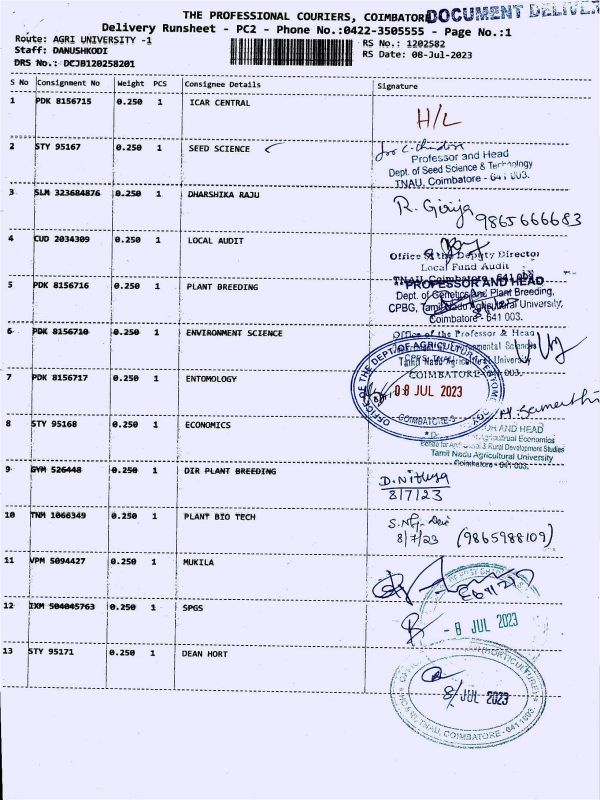 THE PROFESSIONAL COURIERS, COIMBATORE
DOCUMENT DELIVER
Delivery Runsheet - PC2 - Phone No.:0422-3505555 - Page No.:1
Route: AGRI UNIVERSITY -1
RS No.: 1202582
Staff: DANUSHKODI
RS Date: 08-Jul-2023
DRS No.: DCJB120258201
S No Consignment No Weight PCS Consignee Details Signature
1 PDK 8156715 0.250 1 ICAR CENTRAL
H/L
2 STY 95167 0.250 1 SEED SCIENCE
Professor and Head
Dept. of Seed Science & Technology
TNAU, Coimbatore - 641 003.
3 SLM 323684876 0.250 1 DHARSHIKA RAJU
R. Girija 9865666683
4 CUD 2034309 0.250 1 LOCAL AUDIT
Office of the Deputy Director
Local Fund Audit
TNAU, Coimbatore - 641 003
5 PDK 8156716 0.250 1 PLANT BREEDING
PROFESSOR AND HEAD
Dept. of Genetics and Plant Breeding,
CPBG, Tamil Nadu Agricultural University,
Coimbatore - 641 003.
6 PDK 8156710 0.250 1 ENVIRONMENT SCIENCE
Office of the Professor & Head
Environmental Sciences
Tamil Nadu Agricultural University
COIMBATORE 003.
7 PDK 8156717 0.250 1 ENTOMOLOGY
OFFICE OF THE DEPT. OF AGRICULTURAL ENTOMOLOGY
08 JUL 2023
COIMBATORE-3
8 STY 95168 0.250 1 ECONOMICS
AND HEAD
Agricultural Economics
& Rural Development Studies
Tamil Nadu Agricultural University
Coimbatore - 641 003.
9 GYM 526448 0.250 1 DIR PLANT BREEDING
D. Nithya
8/7/23
10 TNM 1066349 0.250 1 PLANT BIO TECH
8/7/23 (9865988109)
11 VPM 5094427 0.250 1 MUKILA
12 IXM 504045763 0.250 1 SPGS
- 8 JUL 2023
13 STY 95171 0.250 1 DEAN HORT
8 JUL 2023
TNAU, COIMBATORE - 641 003.